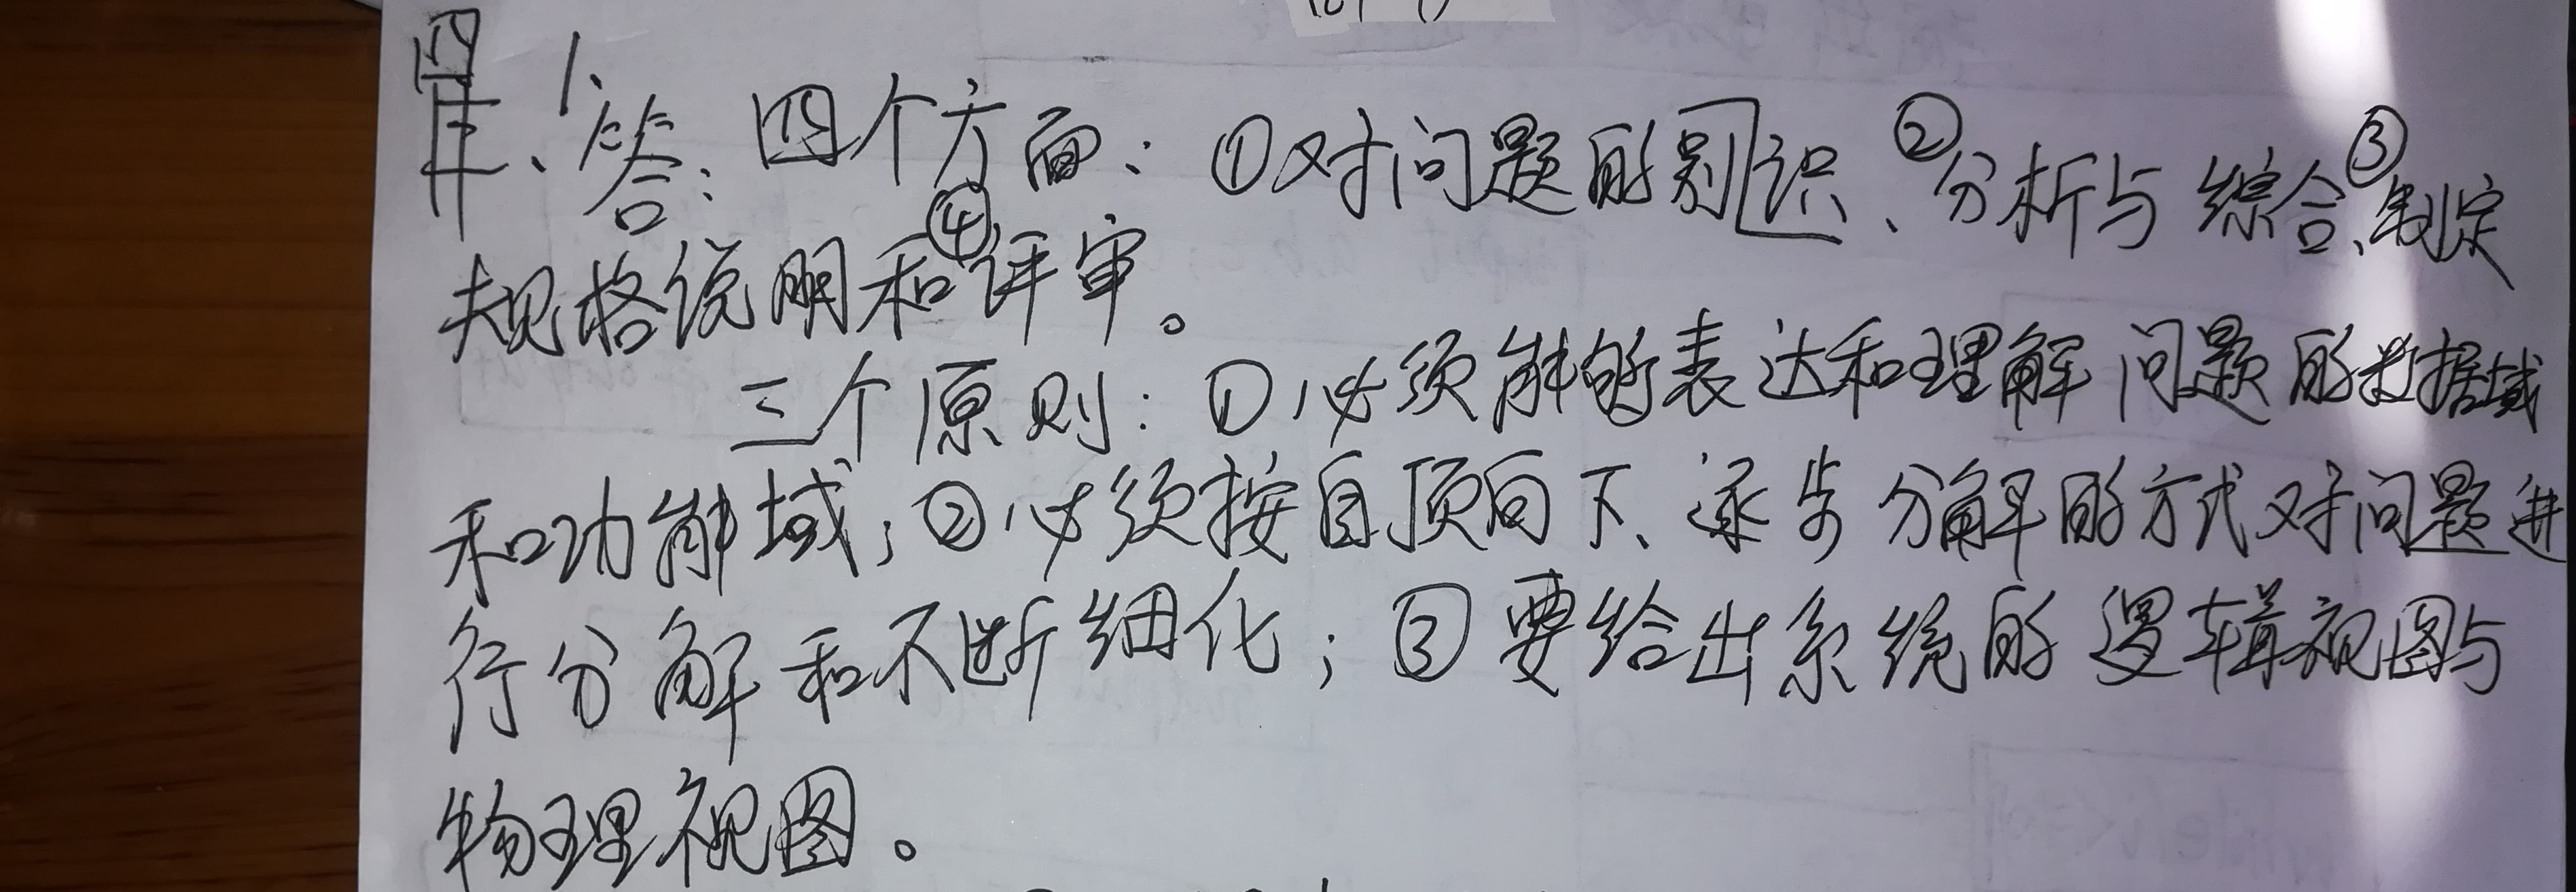 四
1、
年、答：四个方面：①对问题的别识、②分析与综合、③制定
规格说明和④评审。
三个原则：①必须能够表达和理解问题的数据域
和功能域；②必须按自顶向下、逐步分解的方式对问题进
行分解和不断细化；③要给出系统的逻辑视图与
物理视图。